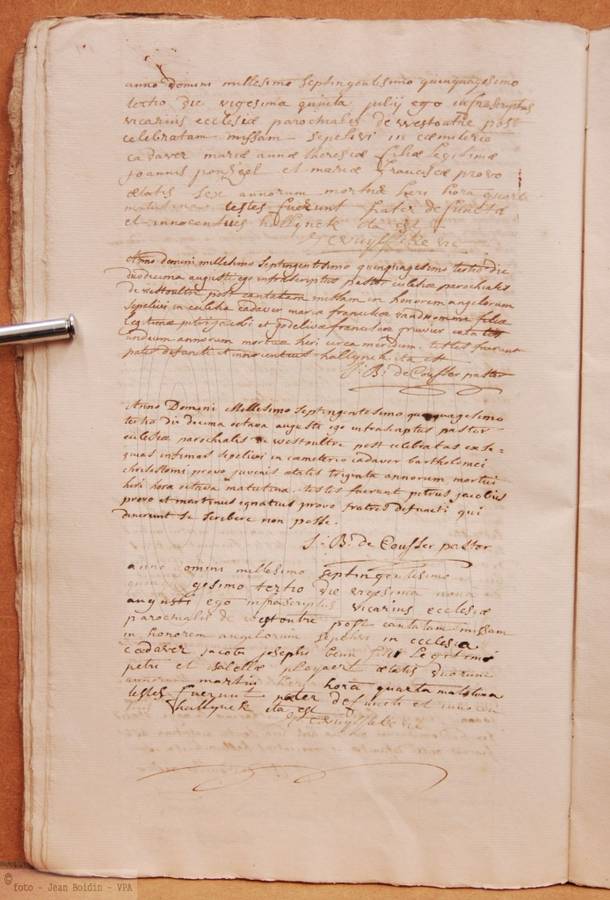 anno domini millesimo septingentesimo quinquagesimo
tertio die vigesima quinta julij ego infrascriptus
vicarius ecclesiæ parochialis de westoutre post
celebratam missam sepelivi in cæmiterio
cadaver mariæ annæ theresiæ filiæ legitimæ
joannis et mariæ franciscæ provo
ætatis sex annorum mortuæ heri hora quarta
matutina testes fuerunt frater defunctæ
et innocentius hallynck ita est
vic
Anno domini millesimo septingentesimo quinquagesimo tertio die
duodecima augusti ego infrascriptus pastor ecclesiæ parochialis
de westoultre post cantatam missam in honorem angelorum
sepelivi in ecclesia cadaver maria francisca vandromme filiæ
legitimæ petri jacobi et godelivæ franciscæ
annorum mortuæ heri circa meridiem testes fuerunt
pater defunctæ et innocentius hallynck ita est
J: B: de Cousser pastor
Anno Domini Millesimo septingentesimo quinquagesimo
tertio die decima octava augusti ego infrascriptus pastor
ecclesiæ parochialis de westoultre post celebratas exse=
quias infimas sepelivi in cæmeterio cadaver bartholomei
provo juvenis ætatis triginta annorum mortui
heri hora octava matutina testes fuerunt petrus jacobus
provo et martinus ignatius provo fratres defuncti qui
dixerunt se scribere non posse.
J: B: de Cousser pastor
anno omini millesimo septingentesimo
gesimo tertio die vigesima nona
augusti ego infrascriptus vicarius ecclesiæ
parochialis de westoutre post cantatam missam
in honorem angelorum sepelivi in ecclesia
cadaver jacobi josephi filii legitimi
petri et isabellæ playaert ætatis duorum
annorum mortui heri hora quarta matutina
testes fuerunt pater defuncti et
hallynck ita est
vic
© foto - Jean Boidin - VPA